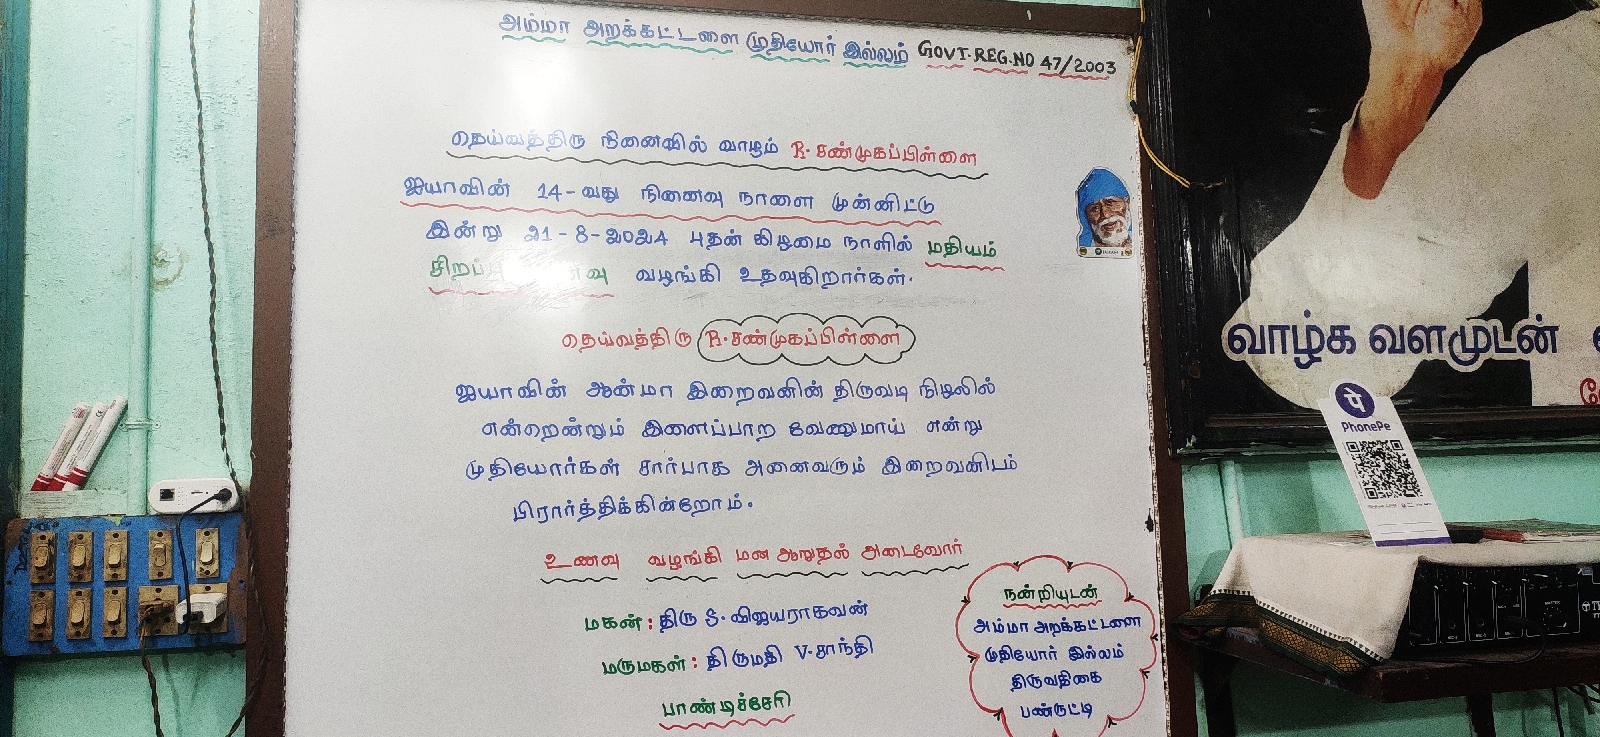 அம்மா அறக்கட்டளை முதியோர் இல்லம் GOVT.REG.NO 47/2003
தெய்வத்திரு நினைவில் வாழும் R.சண்முகப்பிள்ளை
ஐயாவின் 14-வது நினைவு நாளை முன்னிட்டு
இன்று 21-8-2024 புதன் கிழமை நாளில் மதியம்
வழங்கி உதவுகிறார்கள்.
தெய்வத்திரு R.சண்முகப்பிள்ளை
ஐயாவின் ஆன்மா இறைவனின் திருவடி நிழலில்
என்றென்றும் இளைப்பாற வேணுமாய் என்று
முதியோர்கள் சார்பாக அனைவரும் இறைவனிடம்
பிரார்த்திக்கின்றோம்.
உணவு வழங்கி மன ஆறுதல் அடைவோர்
மகன்: திரு S.விஜயராகவன்
மருமகள்: திருமதி V.சாந்தி
பாண்டிச்சேரி
நன்றியுடன்
அம்மா அறக்கட்டளை
முதியோர் இல்லம்
திருவதிகை
பண்ருட்டி
வாழ்க வளமுடன்
PhonePe